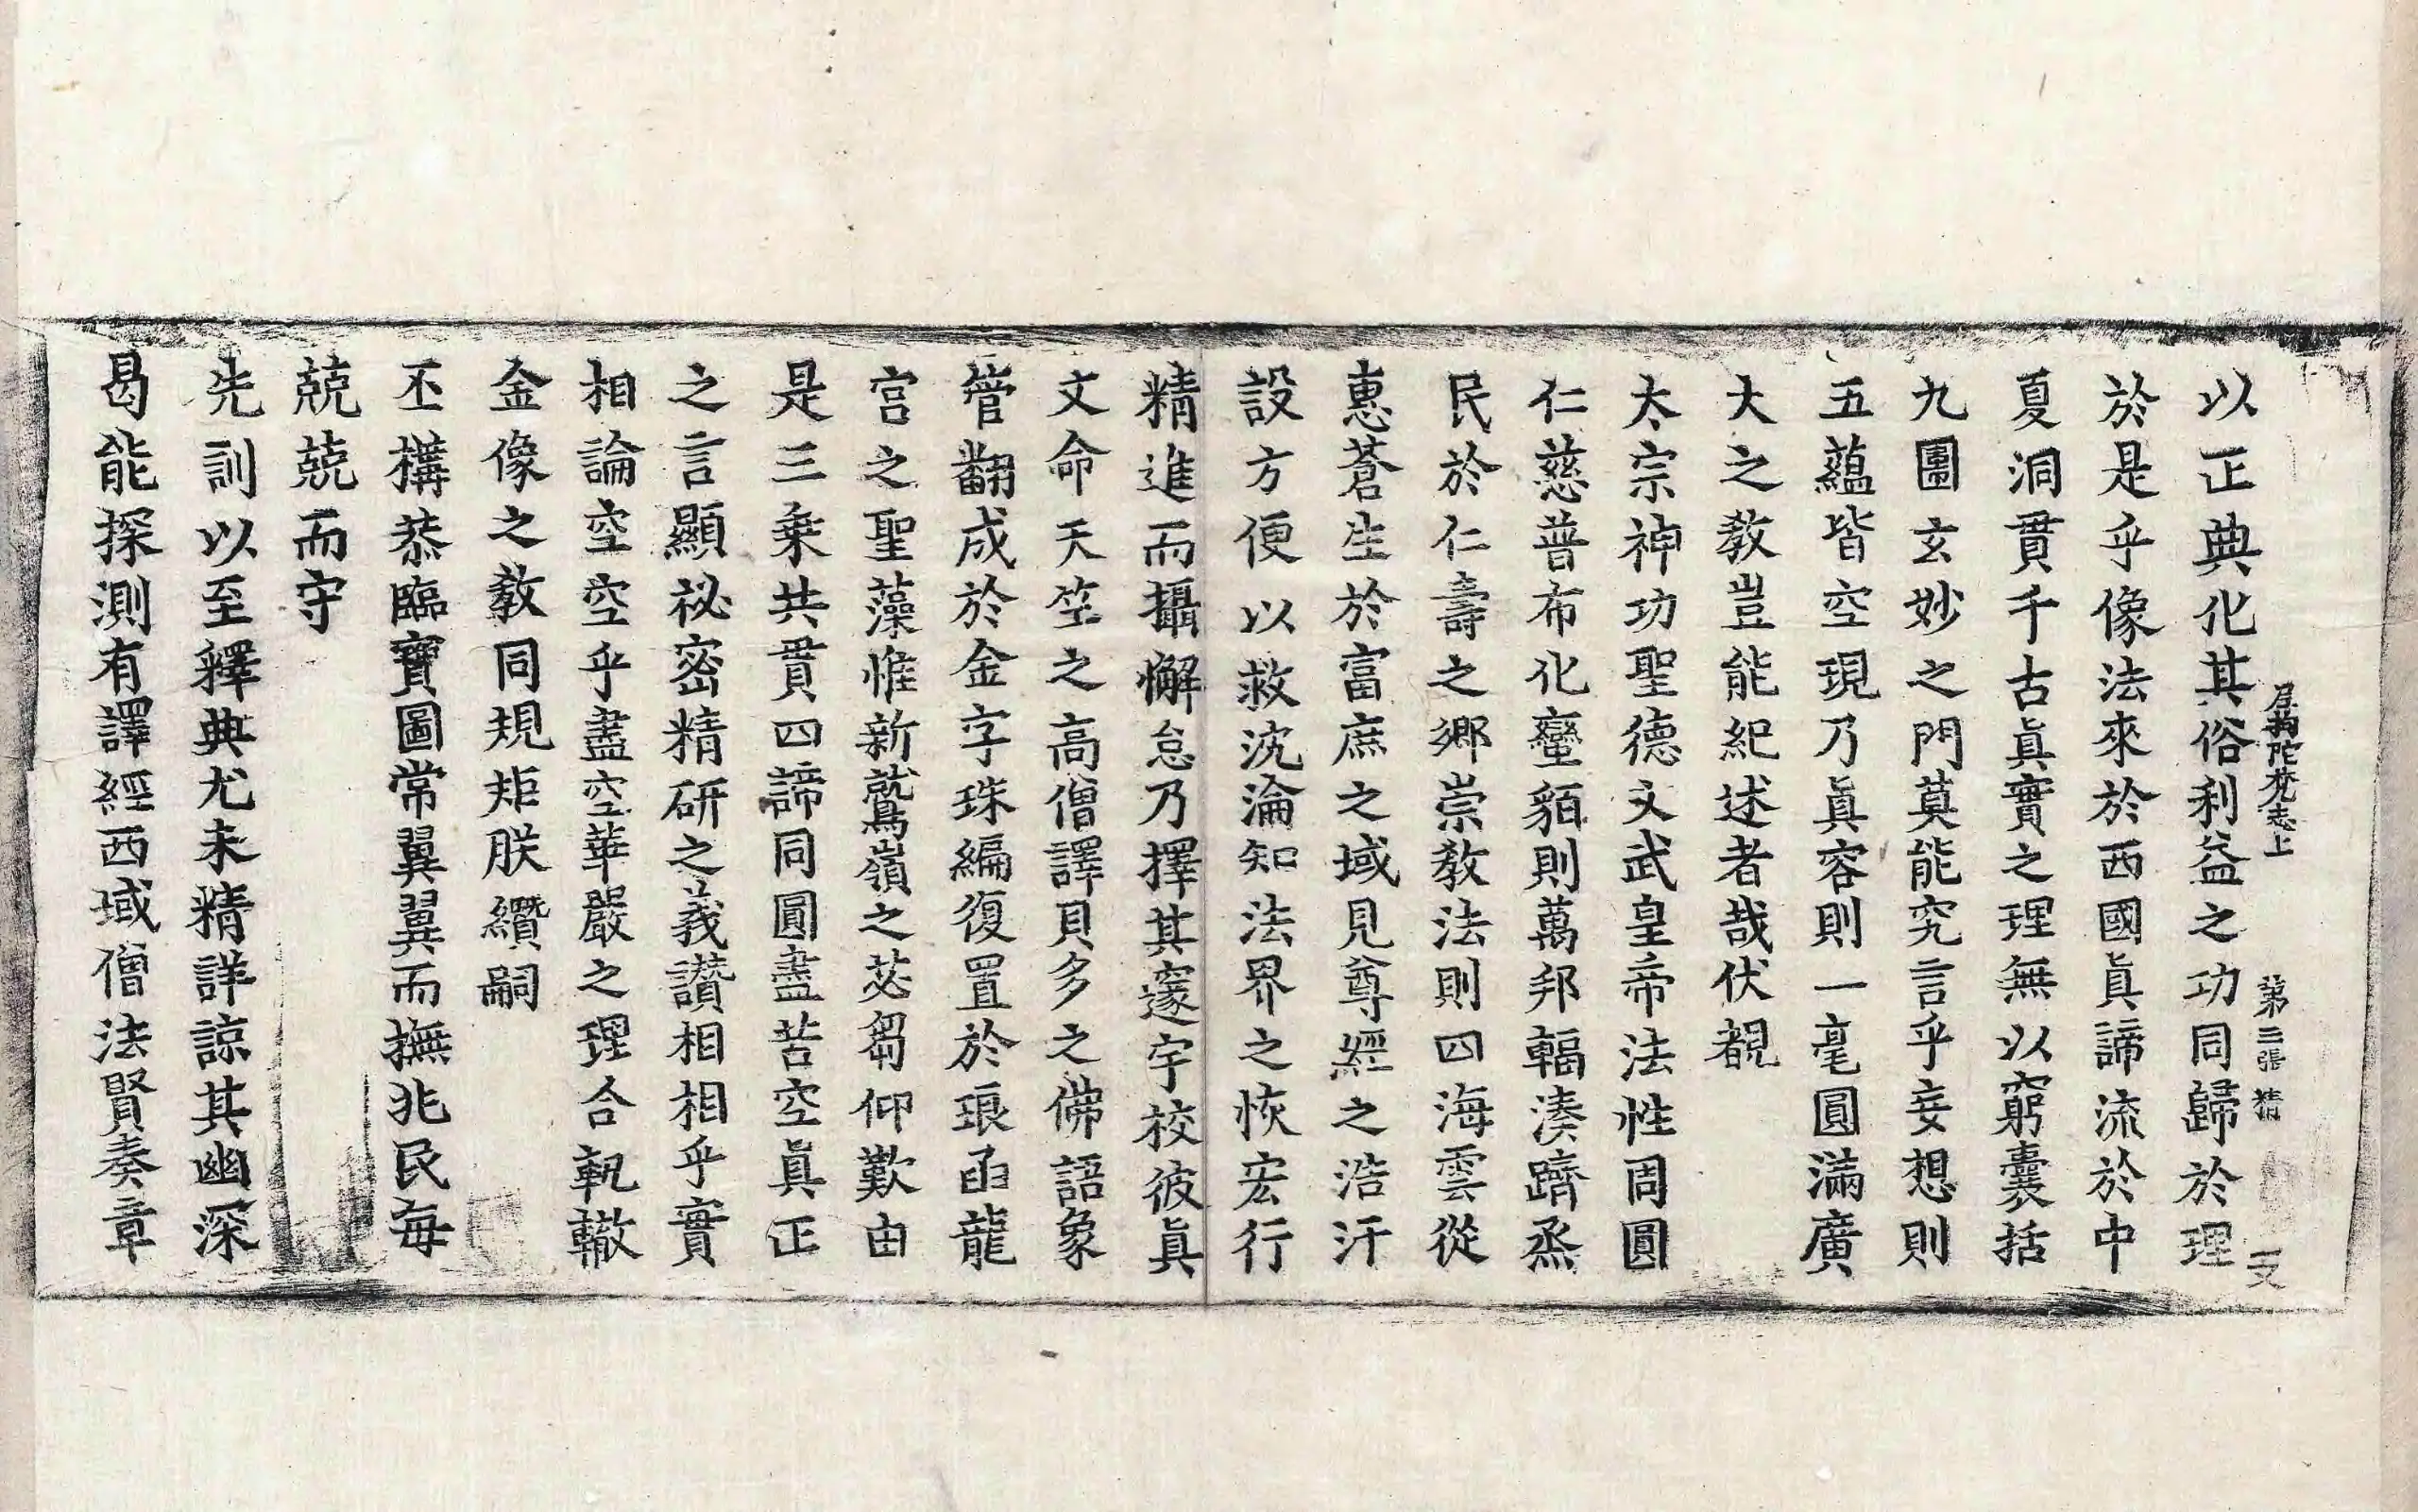 尼拘陀梵志上 第三張 精
以正典化其俗利益之功同歸於理
於是乎像法來於西國眞諦流於中
夏洞貫千古眞實之理無以窮囊括
九圍玄妙之門莫能究言乎妄想則
五蘊皆空現乃眞容則一毫圓滿廣
大之教豈能紀述者哉伏覩
太宗神功聖德文武皇帝法性周圓
仁慈普布化蠻貊則萬邦輻湊躋烝
民於仁壽之鄉崇教法則四海雲從
惠蒼生於富庶之域見尊經之浩汗
設方便以救沈淪知法界之恢宏行
精進而攝懈怠乃擇其邃宇校彼眞
文命天竺之高僧譯貝多之佛語象
管翻成於金字珠編復置於琅函龍
宮之聖藻惟新鷲嶺之苾芻仰歎由
是三乘共貫四諦同圓盡苦空眞正
之言顯祕密精研之義讚相相乎實
相論空空乎盡空華嚴之理合軌轍
金像之教同規矩朕纘嗣
丕構恭臨寶圖常翼翼而撫兆民每
兢兢而守
先訓以至釋典尤未精詳諒其幽深
曷能探測有譯經西域僧法賢奏章